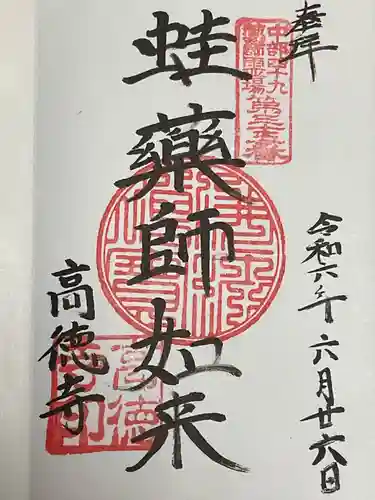 奉拝
中部四十九
薬師霊場
蛙薬師如来
高徳寺
令和六年六月廿六日